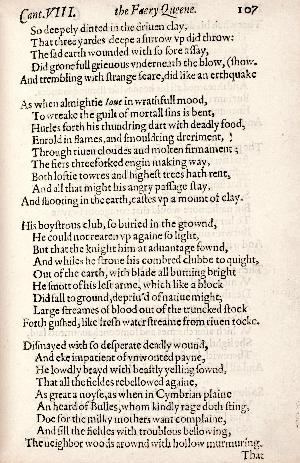 Cant. VIII. the Faery Queene. 107
So deepely dinted in the driuen clay,
That three yardes deepe a furrow vp did throw:
The sad earth wounded with so sore assay,
Did grone full grieuous vnderneath the blow, (show.
And trembling with strange feare, did like an erthquake
As when almightie Ioue in wrathfull mood,
To wreake the guilt of mortall sins is bent,
Hurles forth his thundring dart with deadly food,
Enrold in flames, and smouldring dreriment,
Through riuen cloudes and molten firmament;
The fiers threeforked engin making way,
Both loftie towres and highest trees hath rent,
And all that might his angry passage stay,
And shooting in the earth, castes vp a mount of clay.
His boystrous club, so buried in the grownd,
He could not rearen vp againe so light,
But that the knight him at aduantage fownd,
And whiles he stroue his combred clubbe to quight,
Out of the earth, with blade all burning bright
He smott of his left arme, which like a block
Did fall to ground, depriu'd of natiue might;
Large streames of blood out of the truncked stock
Forth gushed, like fresh water streame from riuen rocke.
Dismayed with so desperate deadly wound,
And eke impatient of vnwonted payne,
He lowdly brayd with beastly yelling sownd,
That all the fieldes rebellowed againe,
As great a noyse, as when in Cymbrian plaine
An heard of Bulles, whom kindly rage doth sting,
Doe for the milky mothers want complaine,
And fill the fieldes with troublous bellowing,
The neighbor woods arownd with hollow murmuring.
That